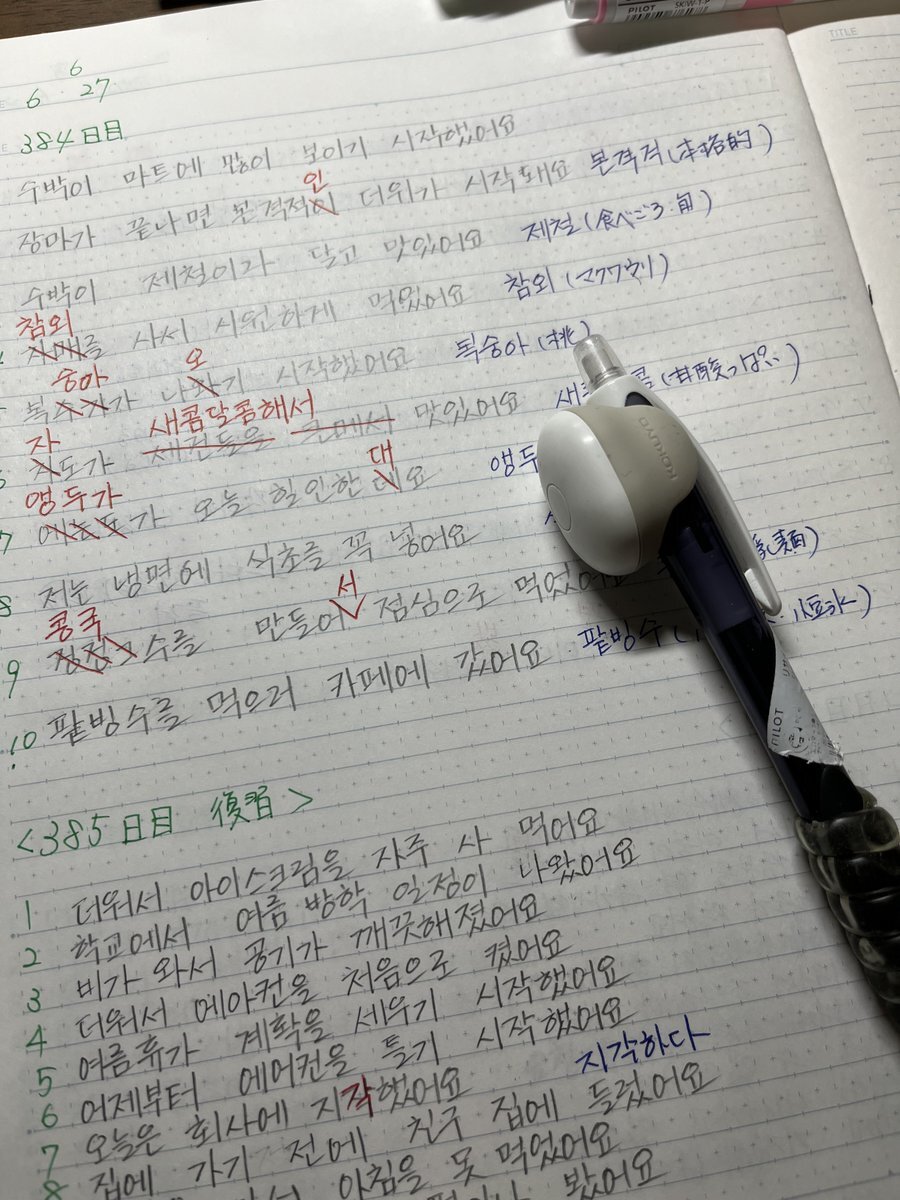 PILOT
TITLE
6
6 27
384日目
수박이 마트에 많이 보이기 시작했어요
인
장마가 끝나면 본격적이 더위가 시작돼요 본격적(本格的)
수박이 제철이라 달고 맛있어요 제철(食べごろ・旬)
참외
를 사서 시원하게 먹었어요 참외(マクワウリ)
숭아 오
복 가 나 기 시작했어요 복숭아(桃)
자 새콤달콤해서
도가 맛있어요 (甘酸っぱい)
앵두가 대
7 가 오늘 할인한 요 앵두
8 저는 냉면에 식초를 꼭 넣어요
콩국 서
9 수를 만들어 점심으로 먹었어요 麺)
10 팥빙수를 먹으러 카페에 갔어요 팥빙수(
KOKUYO
PILOT
<385日目 復習>
1 더워서 아이스크림을 자주 사 먹어요
2 학교에서 여름 방학 일정이 나왔어요
3 비가 와서 공기가 깨끗해졌어요
4 더워서 에아컨을 처음으로 켰어요
5 여름휴가 계획을 세우기 시작했어요
6 어제부터 에어컨을 틀기 시작했어요
7 오늘은 회사에 지각했어요 지각하다
8 집에 가기 전에 친구 집에 들렀어요
아침을 못 먹었어요
봤어요